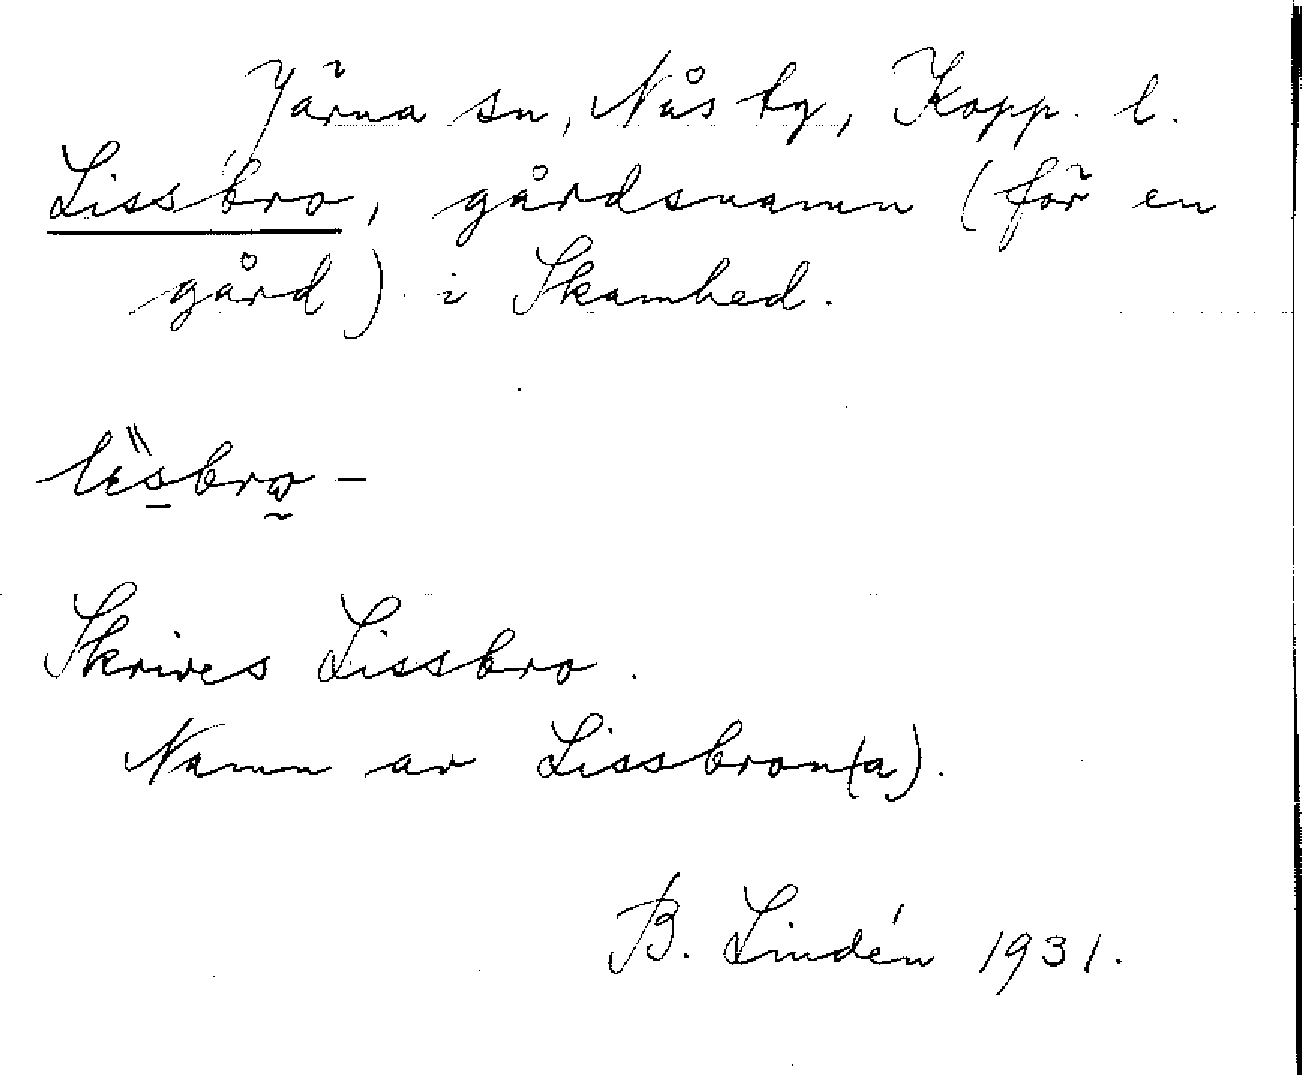 Järna sn, Nås tg, Kopp. l.
Lissbro, gårdsnamn (för en
gård) i Skamhed.
lisbro –
Skrives Lissbro.
Namn av Lissbron(a).
B. Lindén 1931.